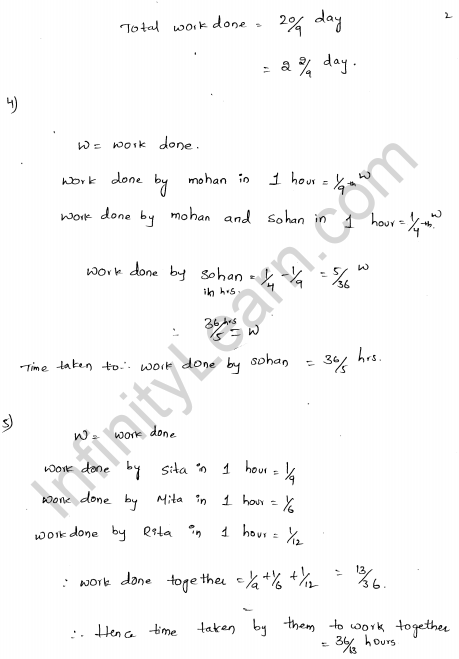 Total work done = 20/9 day
2
= 2 2/9 day.
4)
W = work done.
work done by mohan in 1 hour = 1/9th W
work done by mohan and sohan in 1 hour = 1/4th W
work done by sohan = 1/4 - 1/9 = 5/36 W
in hrs.
∴ 36/5 hrs = W
Time taken to ∴ work done by sohan = 36/5 hrs.
5)
W = work done
work done by Sita in 1 hour = 1/9
work done by Mita in 1 hour = 1/6
work done by Rita in 1 hour = 1/12
∴ work done together = 1/9 + 1/6 + 1/12 = 13/36.
∴ Hence time taken by them to work together
= 36/13 hours
InfinityLearn.com